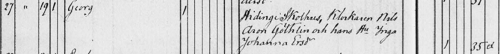 27 " 19 1 Georg 1
Hidinge Skolhus, Klockaren Nils
Aron Göthlin och hans Hu Inga
Johanna Ersd 1 35